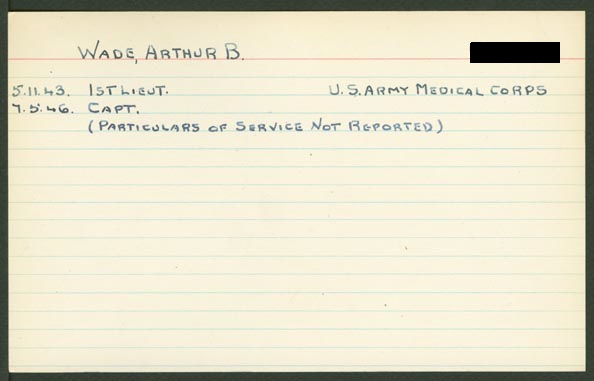 WADE, ARTHUR B.
5.11.43. 1ST LIEUT. U.S. ARMY MEDICAL CORPS
7.5.46. CAPT.
(PARTICULARS OF SERVICE NOT REPORTED)